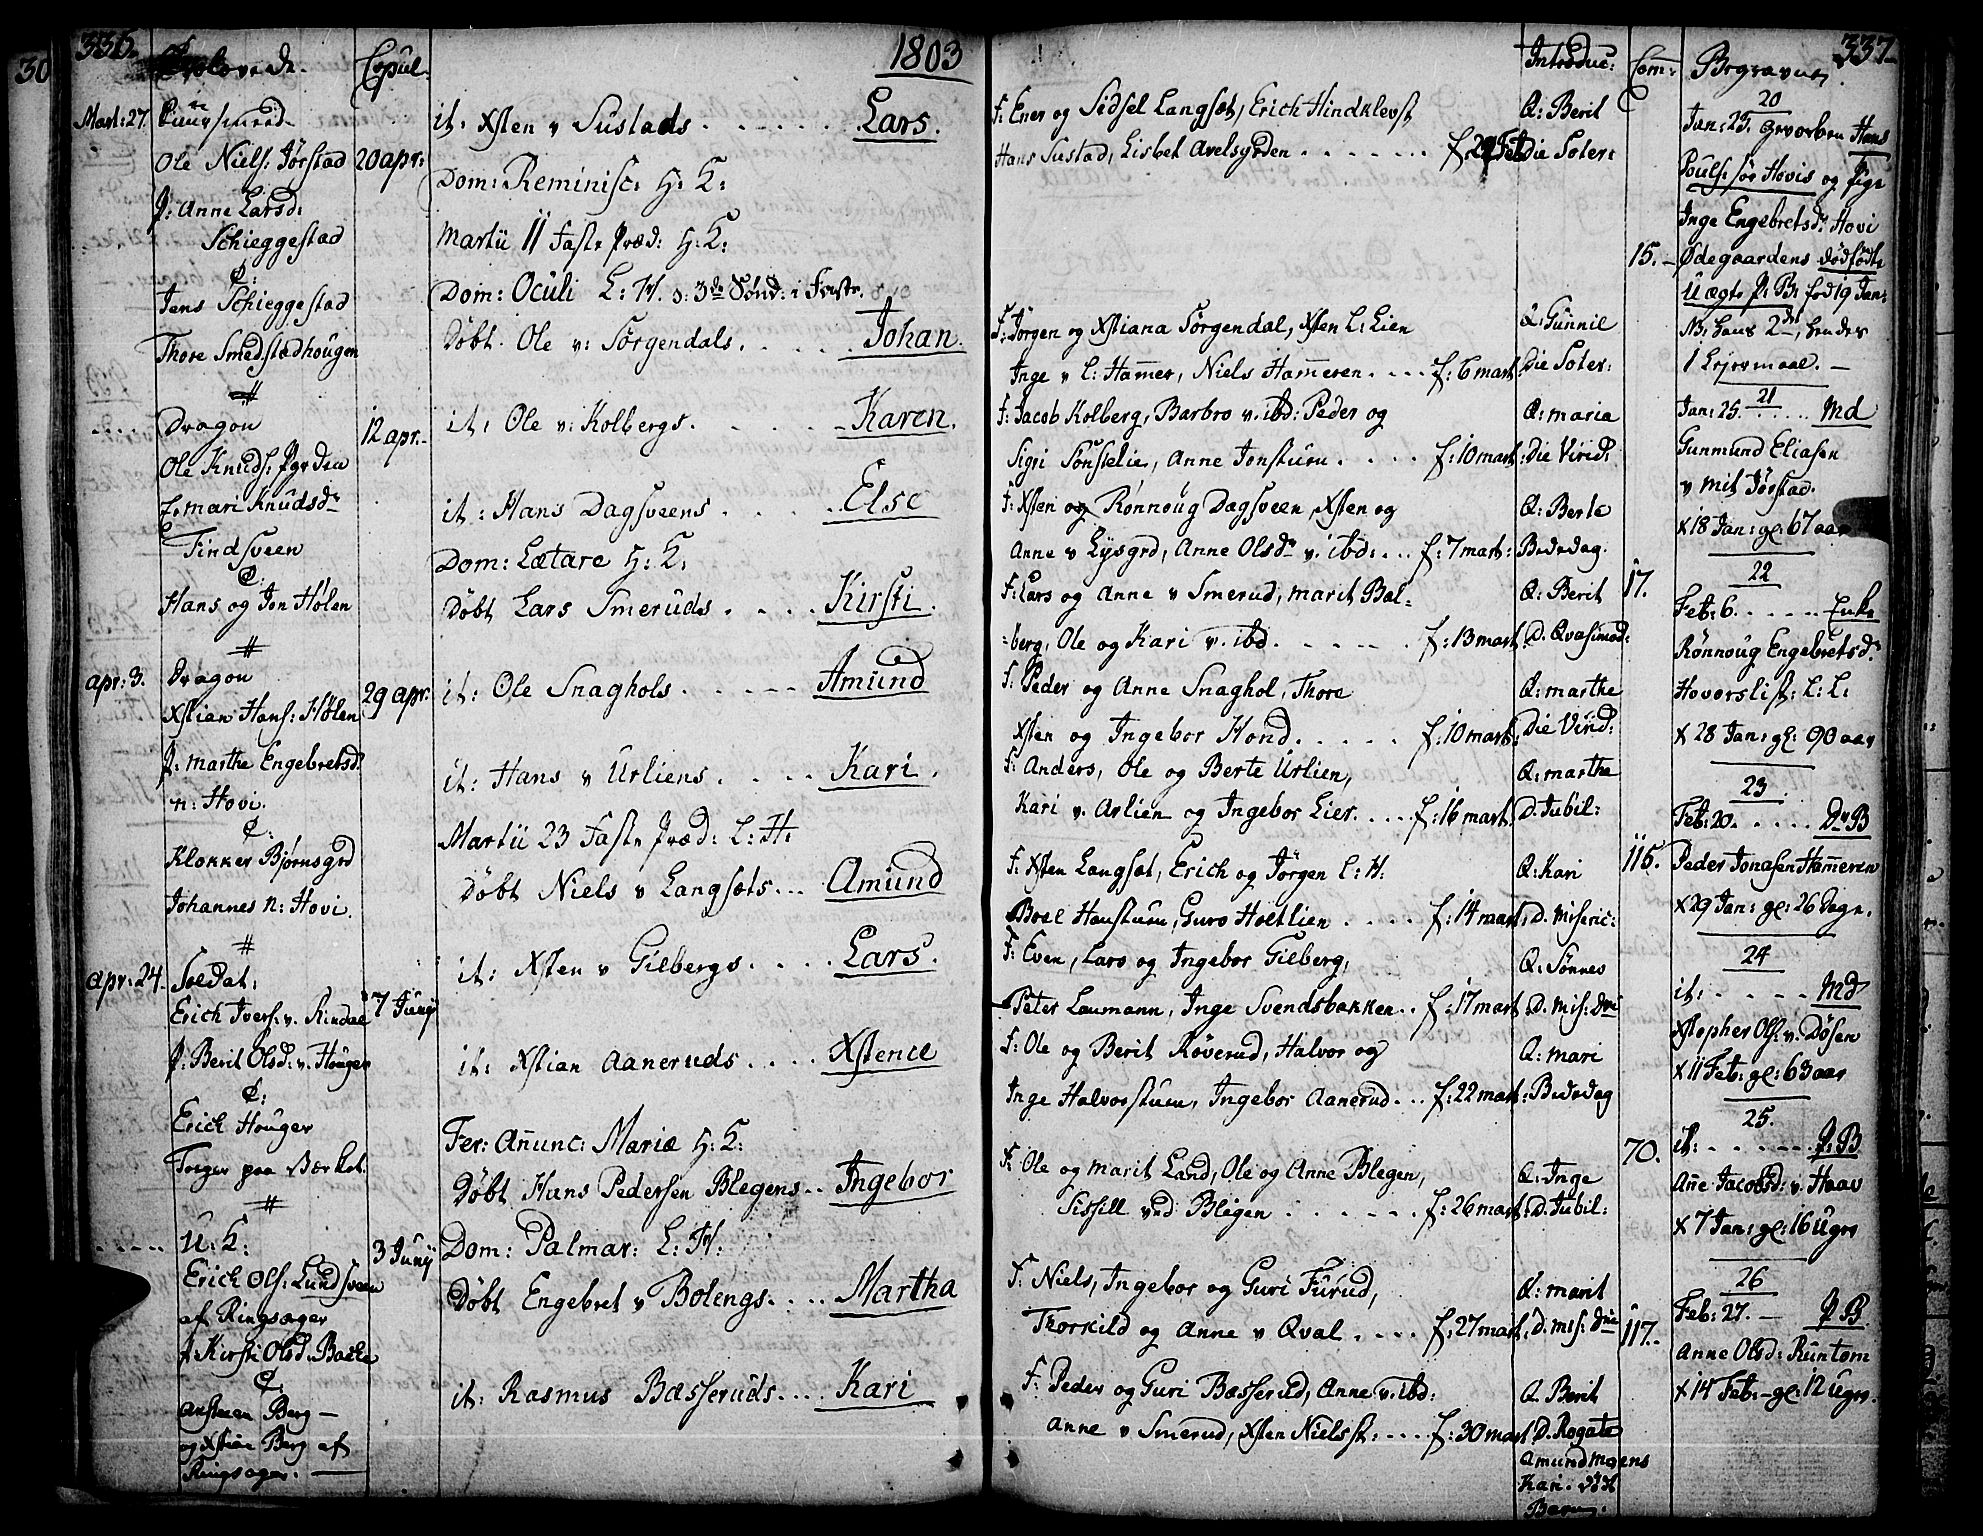 336.
Trolovede.
Copul:
1803
Mart: 27.
Ole Niels: Jørstad
20 apr:
P: Anne Larsd:
Schieggestad
C:
Jens Schieggestad
Thore Smedstadhougen
#
Dragon
12 apr.
Ole Knuds:
P. mari Knudsdr
Tindsveen
C:
Hans og Jon Hølen
#
apr: 3.
Dragon
Xstian Hans: Hølen
29 apr:
P: marthe Engebretsd:
n: Hovi.
C:
Klokker Bjørnsgrd
Johannes n: Hovi.
#
apr: 24.
Soldat:
Erich Ivers: v. Rindal
7 Junij
P: Berit Olsd: v. Houger
C:
Erich Houger
Torger paa Værket.
#
U: K:
3 Junij
Erich Ols: Lundsveen
af Ringsager
P: Kirsti Olsd: Bache
C:
Berg —
og Xstian Berg af
Ringsager. —
it: Xsten v Sustads . . . . . . Lars.
Dom: Reminisc: H: K:
Martii 11 Faste Præd: H: K:
Dom: Oculi L: H. d: 3de Sønd: i Faste.
Døbt Ole v: Sørgendals. . . . . Johan.
it: Ole v: Kolbergs. . . . . . Karen.
it: Hans Dagsveens . . . . . Else
Dom: Lætare H: K:
Døbt Lars Smeruds . . . . Kirsti.
it: Ole Snaghols . . . . . Amund
it: Hans v Urliens. . . . . Kari.
Martii 23 Faste Præd: L: H:
Døbt Niels v Langsets. . . Amund
it: Xsten v Gilbergs. . . . Lars.
it: Xstian Aaneruds . . . . Xstence
Fer: Anunc: Mariæ H: K:
Døbt Hans Pedersen Blegens . . Ingebor
Dom: Palmar: L: H:
Døbt Engebret v Bolengs. . . . Martha
it: Rasmus Bæsseruds. . . . Kari
337.
Introduc:
Com:
Begravne
F: Ener og Sidsel Langset, Erich Hindklevst
Hans Sustad, Lisbet
Q: Berit
Die Soter:
F: Jørgen og Xstiana Sørgendal, Xsten L: Lien
Inge v L: Hamer, Niels Hameren . . . . f: 6 mart:
Q: Gunnil
Die Soter:
F: Jacob Kolberg, Barbro v. ibd: Peder og
Sigri Sønstelie, Anne Jonstuen . . . . f: 10 mart:
Q: maria
Die Virid:
F: Xsten og Rønnoug Dagsveen, Xsten og
Anne v Lysgrd, Anne Olsdr v. ibd: . . . f: 7 mart:
Q: Berte
Bededag.
F: Lars og Anne v Smerud, marit Bal=
=berg, Ole og Kari v. ibd. . . . . . f: 13 mart:
Q: Berit
D. Qvasimod:
F: Peder og Anne Snaghol, Thore
Xsten og Ingebor Hond. . . . . . f: 10 mart:
Q: marthe
Die Virid:
F: Anders, Ole og Berte Urlien,
Kari v. Urlien og Ingebor Lier. . . . . f: 16 mart:
Q: marthe
D. Jubil:
F: Xsten Langset, Erich og Jørgen L: H:
Boel Hanstuen, Guro Holtlien . . . . f: 14 mart:
Q: Kari
D. miseric:
F: Even, Lars og Ingebor Gilberg,
Peter Laumann, Inge Svendsbakken . . f: 17 mart:
Q: Sønnev
D. mis: Dni
F: Ole og Berit Røverud, Halvor og
Inge Halvorstuen, Ingebor Aanerud . . . f: 22 mart:
Q: mari
Bededag
F: Ole og marit Land, Ole og Anne Blegen,
Sissill ved Blegen . . . . . . f: 26 mart:
Q: Inge
D. Jubil:
F: Niels, Ingebor og Guri Furud,
Thorkild og Anne v Qval . . . . f: 27 mart:
Q: marit
D. mis: Dni
F: Peder og Guri Bæsserud, Anne v. ibd:
anne v Smerud, Xsten Nielsst: . . . . f: 30 mart:
Q. Berit
D. Rogate
Amund moens
Kari. død
Barn.
15. —
17.
116.
70.
117.
20
Jan: 23. Hans
Pouls: sør Hovis og Pige
Inge Engebretsdr Hovi
Ødegaardens dødfødte
Uægte P: B: fød 19 Jan:
NB: hans 2det, hendes
1 Leiermaal. —
21
Jan: 25. . . . Md
Gunmund Eliasen
v mit Jørstad.
X 18 Jan: gl: 67 aar
22
Feb: 6. . . . . . Enke
Rønnoug Engebretsdr
Hovorslist: L: L:
X 28 Jan: gl: 90 aar
23
Feb: 20. . . . . Dr B
Peder Jonasen Hameren
X 29 Jan: gl: 26 Dage.
24
it: . . . . Md
Xstopher Ols: v. Døsen
X 11 Feb: gl: 63 aar
25.
it: . . . . . P: B
Ane Jacobsd: v. Haav
X 7 Jan: gl: 16 Uger
26
Feb: 27. — P B
Anne Olsd: Runtom
X 14 Feb: gl: 12 Uger.